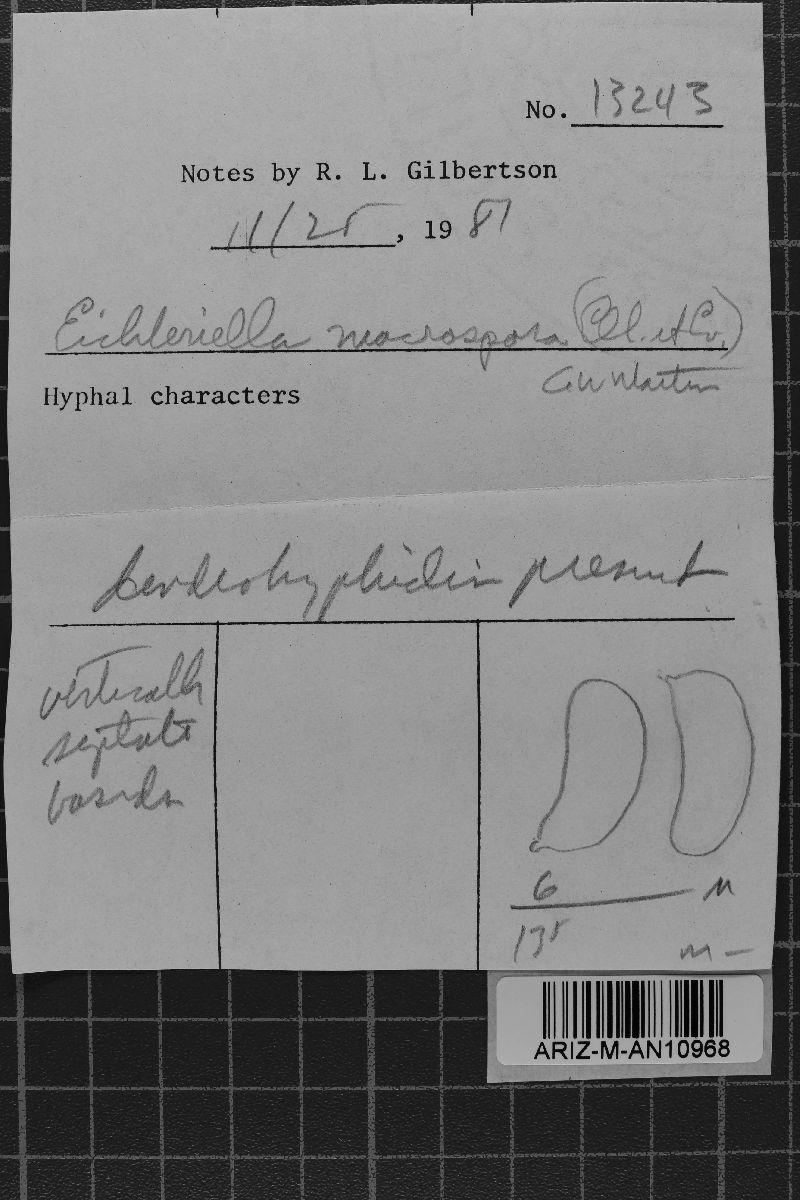 No. 13243
Notes by R. L. Gilbertson
11/25, 1987
Eichleriella macrospora (Ell. et Ev.)
GW Martin
Hyphal characters
dendrohyphidia present
vertically
septate
basidia
6 M
M –
ARIZ-M-AN10968